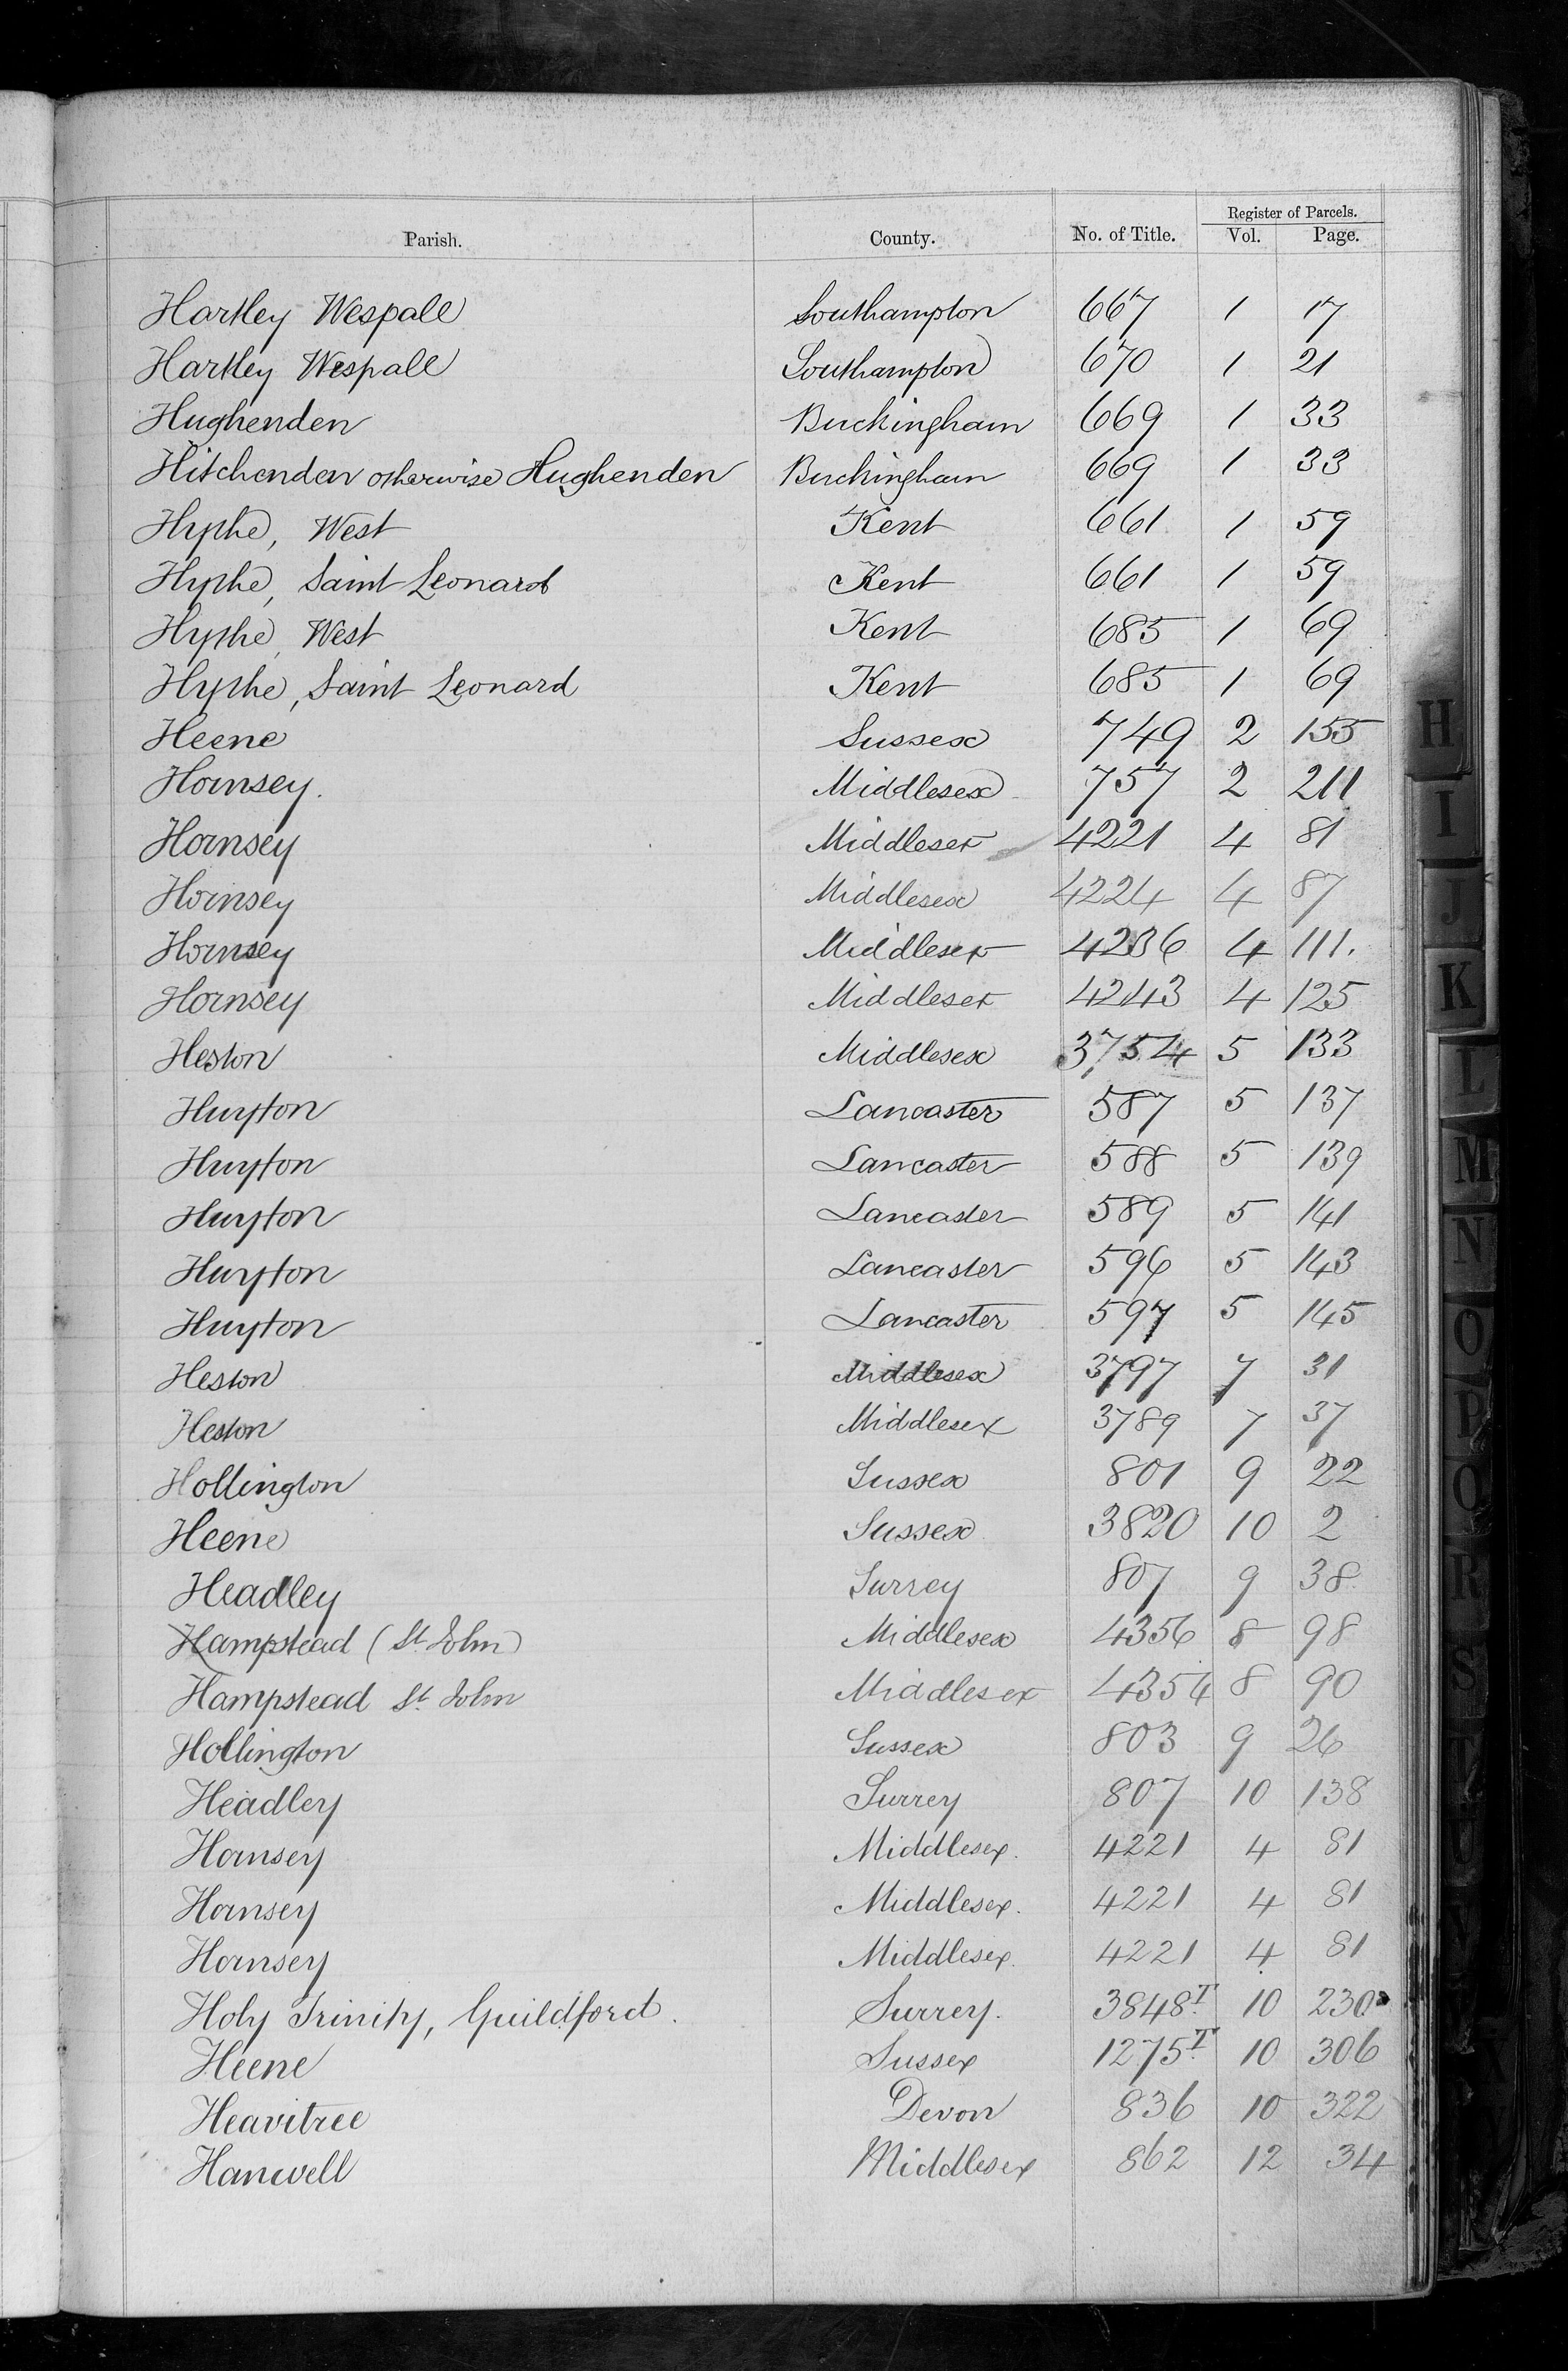 Register of Parcels.
Parish. County. No. of Title. Vol. Page.
Hartley Wespall Southampton 667 1 17
Hartley Wespall Southampton 670 1 21
Hughenden Buckingham 669 1 33
Hitchenden otherwise Hughenden Buckingham 669 1 33
Hythe, West Kent 661 1 59
Hythe, Saint Leonard Kent 661 1 59
Hythe, West Kent 685 1 69
Hythe, Saint Leonard Kent 685 1 69
Heene Sussex 749 2 155
Hornsey. Middlesex 757 2 211
Hornsey Middlesex 4221 4 81
Hornsey Middlesex 4224 4 87
Hornsey Middlesex 4236 4 111.
Hornsey Middlesex 4243 4 125
Heston Middlesex 3754 5 133
Huyton Lancaster 587 5 137
Huyton Lancaster 588 5 139
Huyton Lancaster 589 5 141
Huyton Lancaster 596 5 143
Huyton Lancaster 597 5 145
Heston Middlesex 3797 7 31
Heston Middlesex 3789 7 37
Hollington Sussex 801 9 22
Heene Sussex 3820 10 2
Headley Surrey 807 9 38
Hampstead (St. John) Middlesex 4356 8 98
Hampstead St. John Middlesex 4354 8 90
Hollington Sussex 803 9 26
Headley Surrey 807 10 138
Hornsey Middlesex. 4221 4 81
Hornsey Middlesex. 4221 4 81
Hornsey Middlesex. 4221 4 81
Holy Trinity, Guildford. Surrey. 3848T 10 230
Heene Sussex 1275T 10 306
Heavitree Devon 836 10 322
Hanwell Middlesex 862 12 34
H
I
J
K
L
M
N
O
P
Q
R
S
T
U